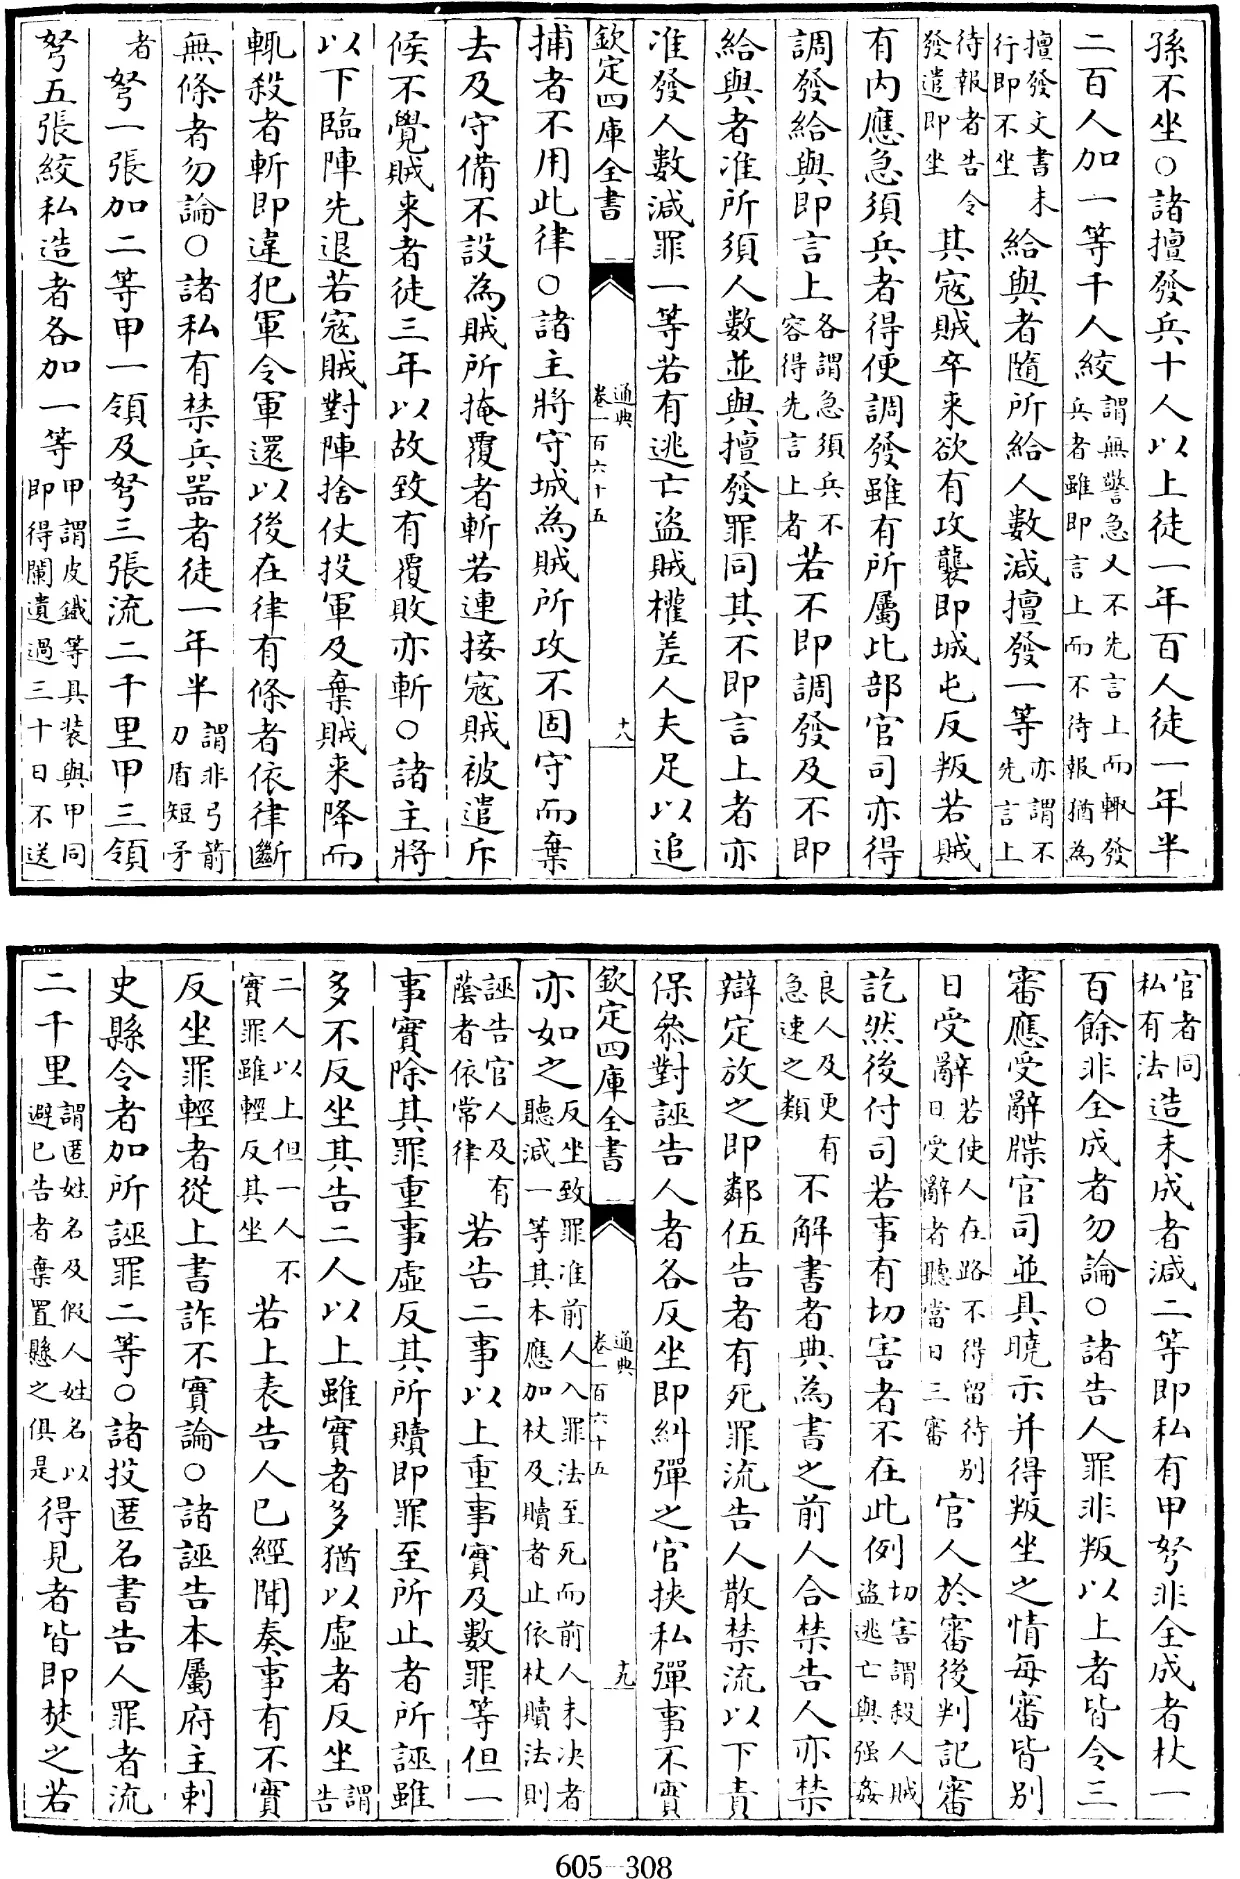 孫不坐○諸擅發兵十人以上徒一年百人徒一年半
二百人加一等千人絞謂無警急又不先言上而輙發兵者雖即言上而不待報猶為
擅發文書未行即不坐給與者隨所給人數減擅發一等亦謂不先言上
待報者告令發遣即坐其宼賊卒来欲有攻襲即城屯反叛若賊
有内應急須兵者得便調發雖有所屬比部官司亦得
調發給與即言上各謂急須兵不容得先言上者若不即調發及不即
給與者准所須人數並與擅發罪同其不即言上者亦
准發人數減罪一等若有逃亡盜賊權差人夫足以追
欽定四庫全書
通典
卷一百六十五
十八
捕者不用此律○諸主將守城為賊所攻不固守而棄
去及守備不設為賊所掩覆者斬若連接宼賊被遣斥
候不覺賊来者徒三年以故致有覆敗亦斬○諸主將
以下臨陣先退若宼賊對陣捨仗投軍及棄賊来降而
輙殺者斬即違犯軍令軍還以後在律有條者依律斷
無條者勿論○諸私有禁兵器者徒一年半謂非弓箭刀盾短矛
者弩一張加二等甲一領及弩三張流二千里甲三領
弩五張絞私造者各加一等甲謂皮鐵等具装與甲同即得闌遺過三十日不送
官者同私有法造未成者減二等即私有甲弩非全成者杖一
百餘非全成者勿論○諸告人罪非叛以上者皆令三
審應受辭牒官司並具曉示并得叛坐之情每審皆别
日受辭若使人在路不得留待别日受辭者聽當日三審官人於審後判記審
訖然後付司若事有切害者不在此例切害謂殺人賊盜逃亡與强姦
良人及更有急速之類不解書者典為書之前人合禁告人亦禁
辯定放之即鄰伍告者有死罪流告人散禁流以下責
保叅對誣告人者各反坐即糾彈之官挾私彈事不實
欽定四庫全書
通典
卷一百六十五
十九
亦如之反坐致罪准前人入罪法至死而前人未决者聽減一等其本應加杖及贖者止依杖贖法則
誣告官人及有蔭者依常律若告二事以上重事實及數罪等但一
事實除其罪重事虛反其所贖即罪至所止者所誣雖
多不反坐其告二人以上雖實者多猶以虛者反坐謂告
二人以上但一人不實罪雖輕反其坐若上表告人已經聞奏事有不實
反坐罪輕者從上書詐不實論○諸誣告本屬府主刺
史縣令者加所誣罪二等○諸投匿名書告人罪者流
二千里謂匿姓名及假人姓名以避已告者棄置懸之俱是得見者皆即焚之若
605-308